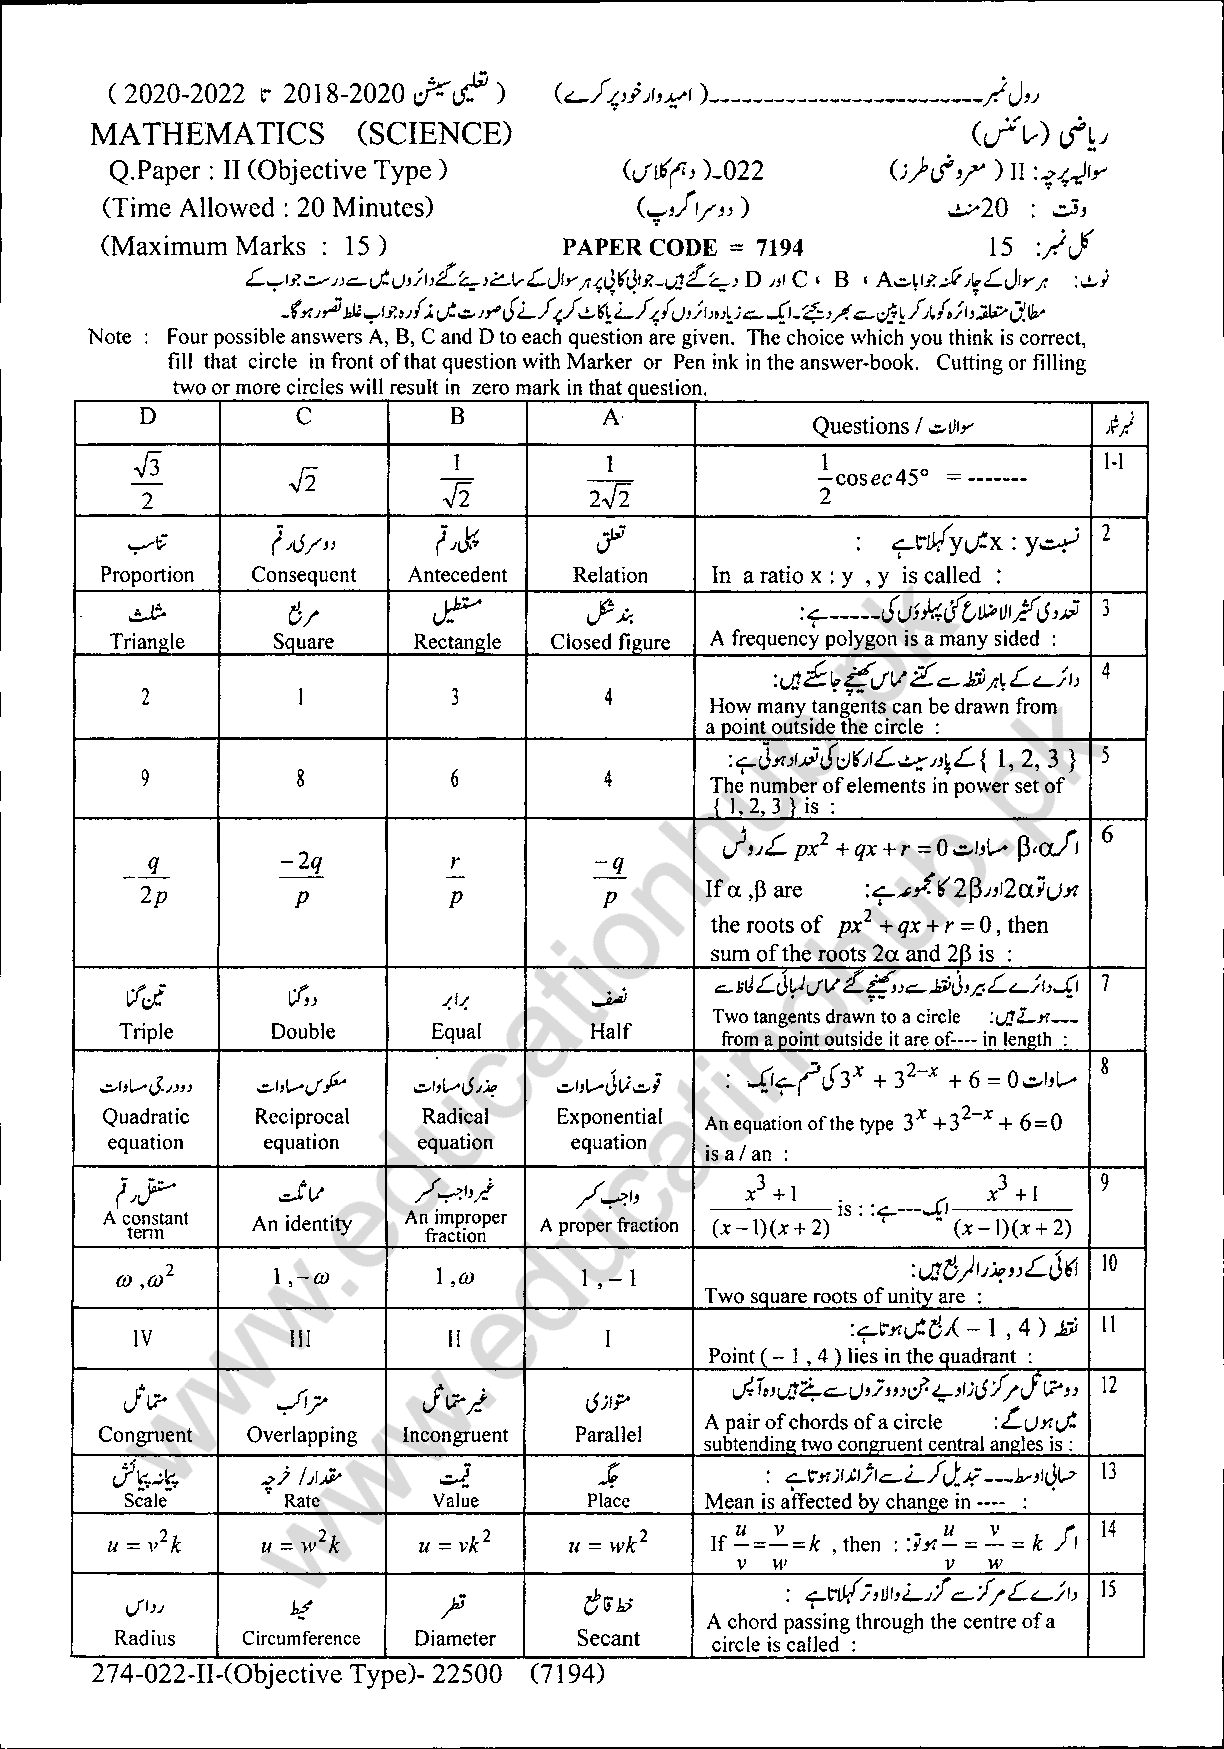 رول نمبر ------------------------- ( امیدوار خود پُر کرے) ( تعلیمی سیشن 2020-2018 تا 2022-2020 )
MATHEMATICS (SCIENCE) ریاضی (سائنس)
Q.Paper : II (Objective Type ) 022-( دہم کلاس) سوالیہ پرچہ: II ( معروضی طرز)
(Time Allowed : 20 Minutes) ( دوسرا گروپ) وقت : 20 منٹ
(Maximum Marks : 15 ) PAPER CODE = 7194 کل نمبر: 15
نوٹ: ہر سوال کے چار ممکنہ جوابات A ، B ، C اور D دیئے گئے ہیں۔ جوابی کاپی پر ہر سوال کے سامنے دیئے گئے دائروں میں سے درست جواب کے
مطابق متعلقہ دائرہ کو مارکر یا پین سے بھر دیجئے۔ ایک سے زیادہ دائروں کو پُر کرنے یا کاٹ کر پُر کرنے کی صورت میں مذکورہ جواب غلط تصور ہو گا۔
Note : Four possible answers A, B, C and D to each question are given. The choice which you think is correct,
fill that circle in front of that question with Marker or Pen ink in the answer-book. Cutting or filling
two or more circles will result in zero mark in that question.
D C B A Questions / سوالات نمبر شمار
√3/2 √2 1/√2 1/2√2 1/2 cosec 45° = ------- 1-1
تناسب دوسری رقم پہلی رقم تعلق نسبت x : y میں y کہلاتا ہے : 2
Proportion Consequent Antecedent Relation In a ratio x : y , y is called :
مثلث مربع مستطیل بند شکل تعددی کثیر الاضلاع کئی پہلوؤں کی ------ ہے: 3
Triangle Square Rectangle Closed figure A frequency polygon is a many sided :
دائرے کے باہر نقطہ سے کتنے مماس کھینچے جا سکتے ہیں: 4
2 1 3 4 How many tangents can be drawn from
a point outside the circle :
{ 1, 2, 3 } کے پاور سیٹ کے ارکان کی تعداد ہوتی ہے: 5
9 8 6 4 The number of elements in power set of
{ 1, 2, 3 } is :
اگر α، β مساوات px² + qx + r = 0 کے روٹس 6
-q/2p -2q/p r/p -q/p If α ,β are ہوں تو 2α اور 2β کا مجموعہ ہے:
the roots of px² + qx + r = 0 , then
sum of the roots 2α and 2β is :
تین گنا دو گنا برابر نصف ایک دائرے کے بیرونی نقطہ سے دو کھینچے گئے مماس لمبائی کے لحاظ سے 7
Triple Double Equal Half Two tangents drawn to a circle ---- ہوتے ہیں:
from a point outside it are of---- in length :
دو درجی مساوات معکوس مساوات جذری مساوات قوت نمائی مساوات مساوات 3ˣ + 3²⁻ˣ + 6 = 0 کی قسم ہے ایک : 8
Quadratic equation Reciprocal equation Radical equation Exponential equation An equation of the type 3ˣ + 3²⁻ˣ + 6=0
is a / an :
مستقل رقم مماثلت غیر واجب کسر واجب کسر (x³ + 1)/((x – 1)(x + 2)) ایک --- ہے: 9
A constant term An identity An improper fraction A proper fraction (x³ + 1)/((x – 1)(x + 2)) is :
اکائی کے دو جذر المربع ہیں: 10
ω ,ω² 1 ,–ω 1 ,ω 1 , – 1 Two square roots of unity are :
نقطہ ( – 1 , 4 ) ربع میں ہوتا ہے: 11
IV III II I Point ( – 1 , 4 ) lies in the quadrant :
متماثل متراکب غیر متماثل متوازی دو متماثل مرکزی زاویے جن دو وتروں سے بنتے ہیں وہ آپس 12
Congruent Overlapping Incongruent Parallel A pair of chords of a circle میں ہوں گے:
subtending two congruent central angles is :
پیمانہ پیمائش مقدار / خرچہ قیمت جگہ حسابی اوسط --- تبدیل کرنے سے اثر انداز ہوتا ہے : 13
Scale Rate Value Place Mean is affected by change in ---- :
u = v²k u = w²k u = vk² u = wk² If u/v = v/w = k , then : اگر u/v = v/w = k ہو تو: 14
رداس محیط قطر خط قاطع دائرے کے مرکز سے گزرنے والا وتر کہلاتا ہے : 15
Radius Circumference Diameter Secant A chord passing through the centre of a
circle is called :
274-022-II-(Objective Type)- 22500 (7194)
www.educationhub.pk
www.educationhub.pk